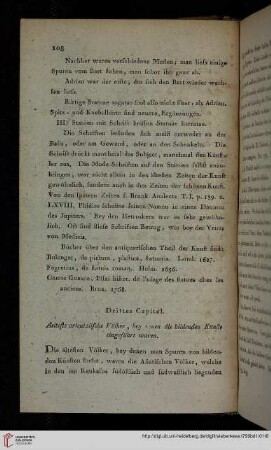 108
Nachher waren verschiedene Moden; man liess einige
Spuren vom Bart stehen, man schor ihn ganz ab.
Adrian war der erste, der sich den Bart wieder wachsen
liess.
Bärtige Statuen sind also nicht älter, als Adrian.
Spitz- und Knebelbärte sind neuere Ergänzungen.
III) Statüen mit Schrift heissen Statuae
Die Schriften befinden sich meist entweder an der
Basis, oder am Gewand, oder an den Schenkeln. Die
Schrift drückt manchmal das Subject, manchmal den Künstler
aus. Die Mode Schriften auf den Statuen selbst anzubringen,
war nicht allein in den ältesten Zeiten der Kunst
gewöhnlich, sondern auch in den Zeiten der schönen Kunst.
Von den spätern Zeiten s. Brunk Analecta T. I. p. 139. n.
LXVIII. Phidias schrieb seinen Namen an einen Daumen
des Jupiters. Bey den Hetruskern war es sehr gewöhnlich.
Oft sind diese Schriften Betrug, wie bey der Venus
von Medicis.
Bücher über den antiquarischen Theil der Kunst sind:
Bulenger, de pictura, plastice, statuaria. Lond. 1627.
Figrelius, de statuis roman. Holm. 1656.
Guasco, Essai histor. de l'usage des statues chez les
anciens. Brux. 1768.
Drittes Capitel.
Aelteste orientalische Völker, bey denen die bildenden Künste
eingeführt waren.
Die ältesten Völker, bey denen man Spuren von bildenden
Künsten findet, waren die Asiatischen Völker, welche
in den am Kaukasus südöstlich und südwestlich liegenden